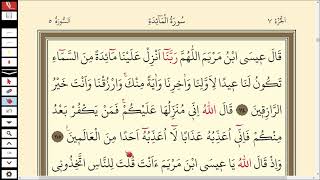 الجزء ٧
سورة المائدة
السورة ٥
قَالَ عِيسَى ابْنُ مَرْيَمَ اللَّهُمَّ رَبَّنَٓا اَنْزِلْ عَلَيْنَا مَٓائِدَةً مِنَ السَّمَٓاءِ
تَكُونُ لَنَا عِيدًا لِاَوَّلِنَا وَاٰخِرِنَا وَاٰيَةً مِنْكَۚ وَارْزُقْنَا وَاَنْتَ خَيْرُ
الرَّازِقِينَ ﴿١١٤﴾ قَالَ اللّٰهُ اِنِّي مُنَزِّلُهَا عَلَيْكُمْۚ فَمَنْ يَكْفُرْ بَعْدُ
مِنْكُمْ فَاِنِّٓي اُعَذِّبُهُ عَذَابًا لَٓا اُعَذِّبُهُٓ اَحَدًا مِنَ الْعَالَمِينَ ﴿١١٥﴾
وَاِذْ قَالَ اللّٰهُ يَا عِيسَى ابْنَ مَرْيَمَ ءَاَنْتَ قُلْتَ لِلنَّاسِ اتَّخِذُونِي